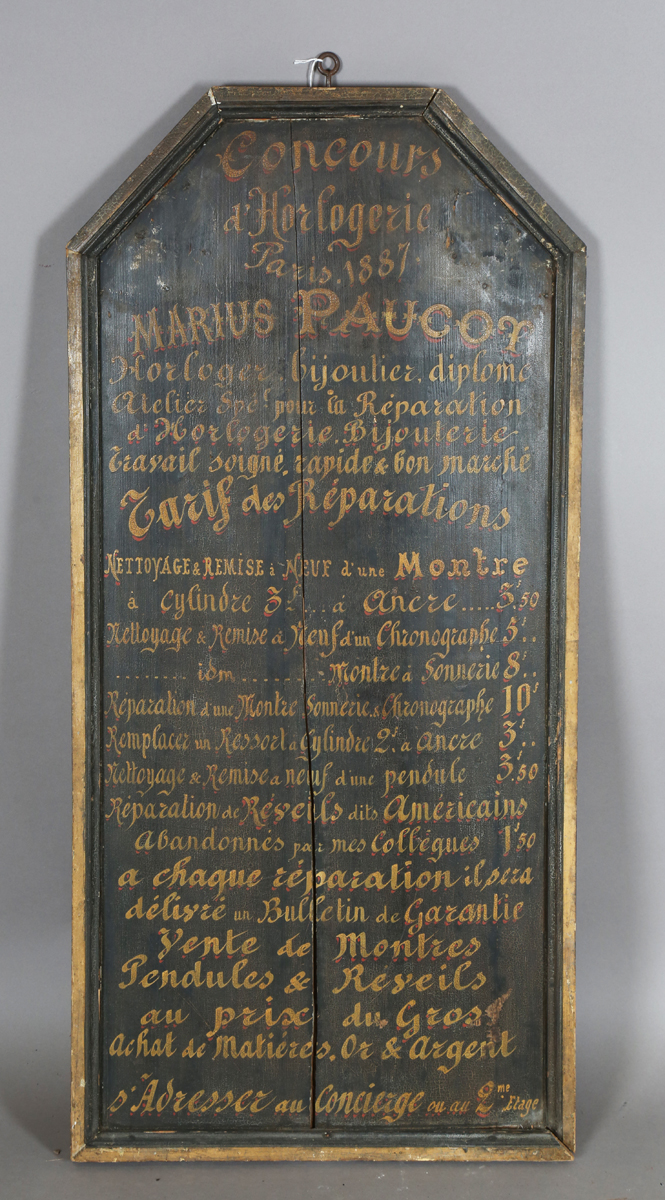 Concours
d'Horlogerie
Paris. 1887.
MARIUS PAUCOT
Horloger, bijoutier, diplomé
Atelier Spél pour la Réparation
d'Horlogerie. Bijouterie
Travail soigné, rapide & bon marché
Tarif des Réparations
NETTOYAGE & REMISE à NEUF d'une Montre
à Cylindre 3f... à Ancre.....3f.50
Nettoyage & Remise à Neuf d'un Chronographe 5f..
........ idm ........ Montre à Sonnerie 8f..
Réparation d'une Montre Sonnerie & Chronographe 10f
Remplacer un Ressort à Cylindre 2f. à ancre 3f..
Nettoyage & Remise a neuf d'une pendule 3f.50
Réparation de Réveils dits Américains
abandonnés par mes Collègues 1f50
a chaque réparation il sera
délivré un Bulletin de Garantie
Vente de Montres
Pendules & Réveils
au prix du Gros
Achat de Matières. Or & Argent
s'Adresser au Concierge ou au 2me Etage